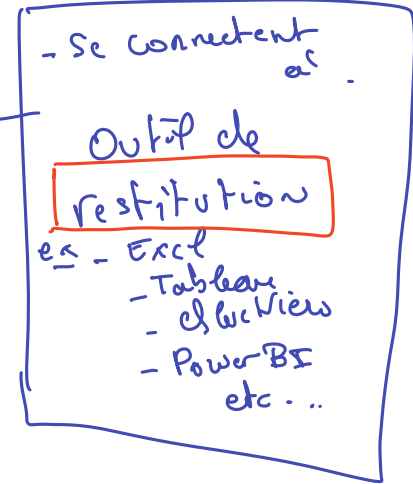 - Se connectent
à .
Outil de
restitution
ex - Excel
- Tableau
-
- PowerBI
etc...